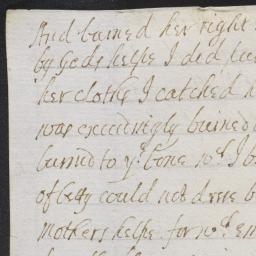 And burned her right
by Gods helpe I did
her cloths I catched h
was exceedingly burned
burnd to yᵉ bone wᶜʰ I b
of betty could not dress b
Mothers helpe for wᶜʰ